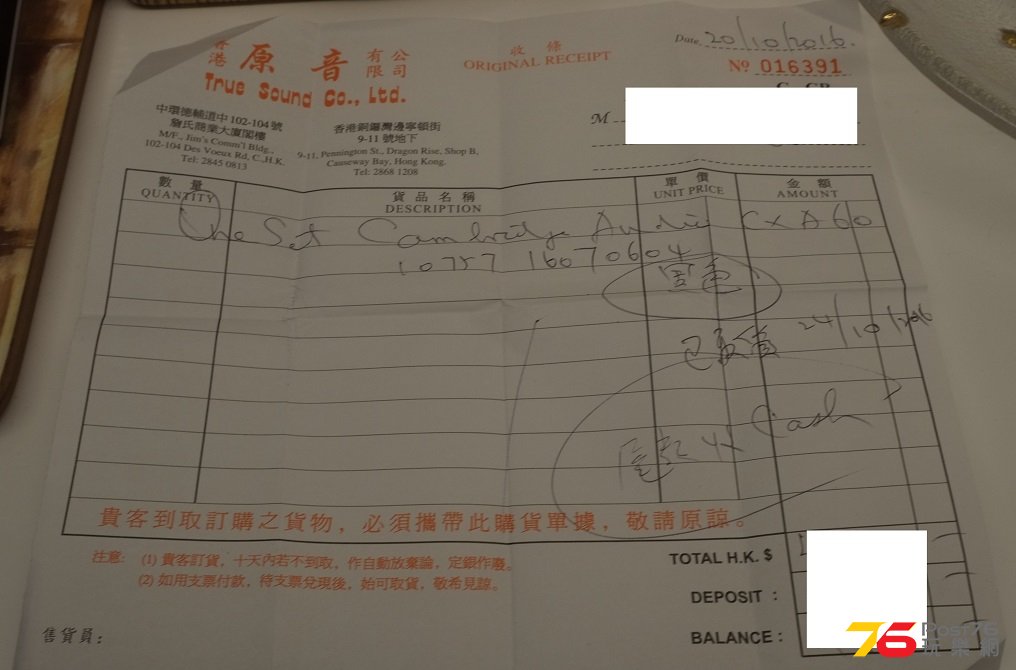 香港 原音 有限公司
True Sound Co., Ltd.
收條
ORIGINAL RECEIPT
Date. 20/10/2016.
№ 016391
中環德輔道中102-104號
詹氏商業大廈閣樓
M/F., Jim's Comm'l Bldg.,
102-104 Des Voeux Rd, C.,H.K.
Tel: 2845 0813
香港銅鑼灣邊寧頓街
9-11 號地下
9-11, Pennington St., Dragon Rise, Shop B,
Causeway Bay, Hong Kong.
Tel: 2868 1208
M
數量 貨品名稱 單價 金額
QUANTITY DESCRIPTION UNIT PRICE AMOUNT
One Set Cambridge Audio CXA60
10757 16070604
已 24/10/2016
Cash
貴客到取訂購之貨物，必須攜帶此購貨單據，敬請原諒。
注意: (1) 貴客訂貨，十天內若不到取，作自動放棄論，定銀作廢。
(2) 如用支票付款，待支票兌現後，始可取貨，敬希見諒。
TOTAL H.K. $
DEPOSIT :
BALANCE :
售貨員：
76 Post76
玩樂網